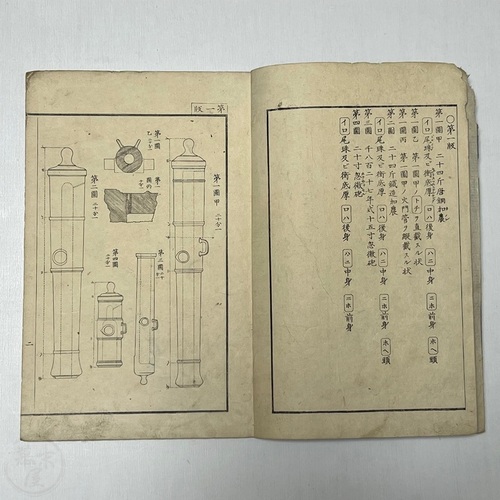 〇第一版
第一圖甲 二十四斤唐銅加農
イロ尾珠及ヒ銜底厚 ロハ後身 ハニ中身 ニホ前身 ホヘ頭
第一圖乙 第一圖甲ノトチヲ直截スル状
第一圖丙 第一圖甲ノ火門管ヲ縱截スル状
第二圖 二十四斤鐵造加農
イロ尾珠及ヒ銜底厚 ロハ後身 ハニ中身 ニホ前身 ホヘ頭
第三圖 千八百二十七年式十五寸忽微砲
第四圖 二十寸忽微砲
第一版
第一圖甲
第一圖乙
第二圖
第三圖
第四圖
二